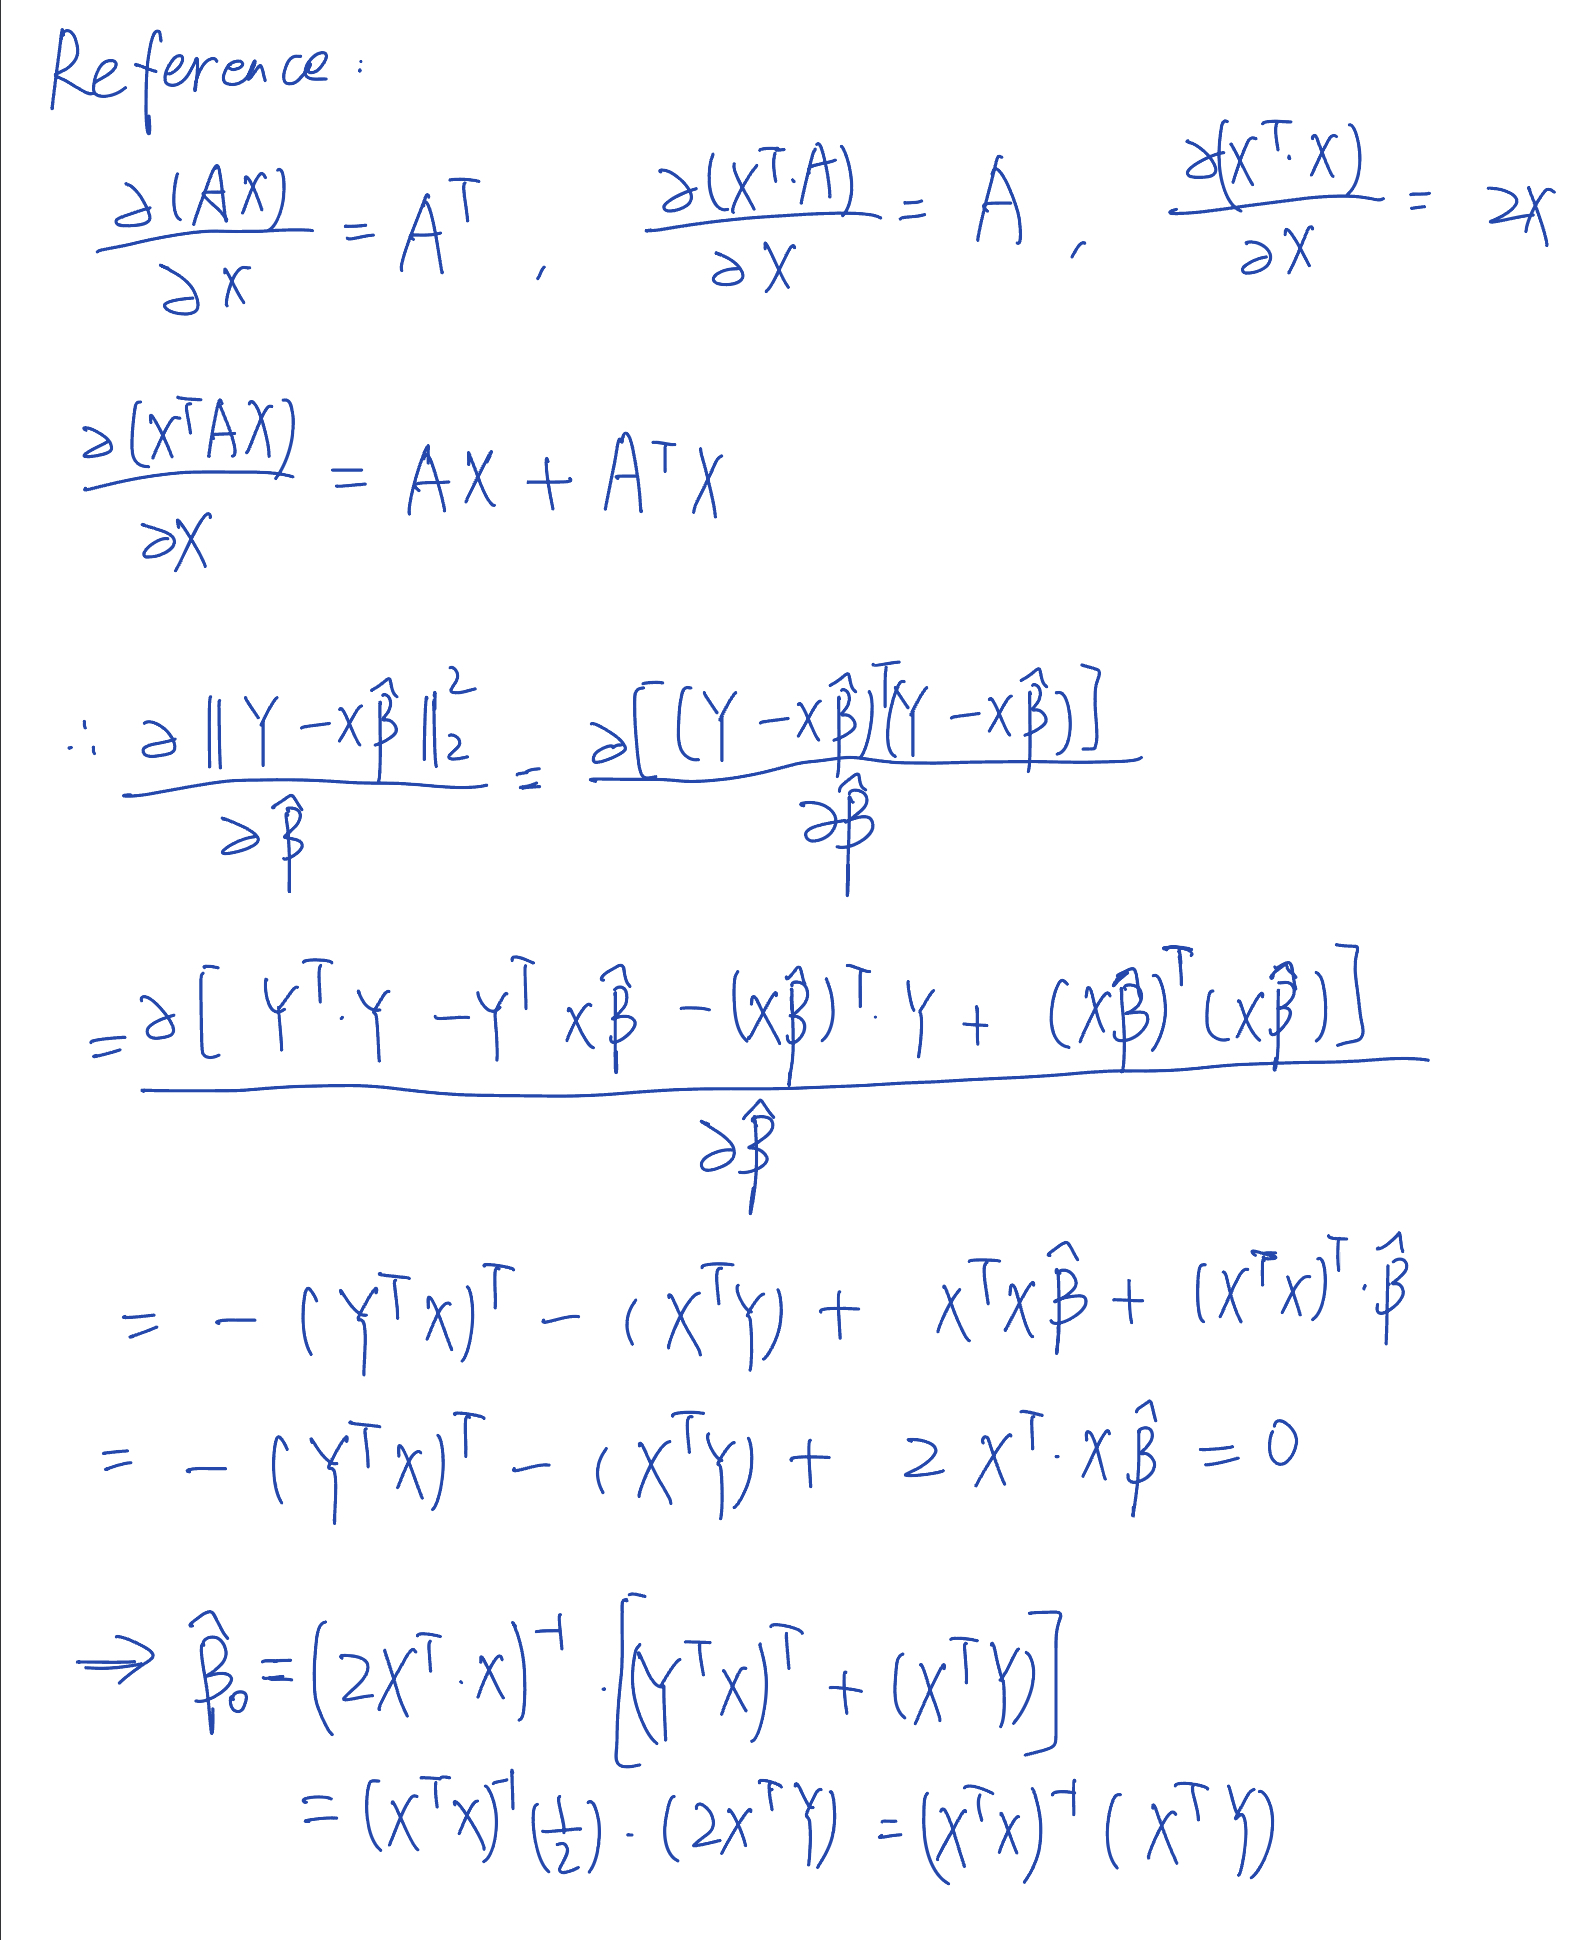 Reference:
∂(AX)/∂X = Aᵀ, ∂(Xᵀ·A)/∂X = A, ∂(Xᵀ·X)/∂X = 2X
∂(XᵀAX)/∂X = AX + AᵀX
∴ ∂‖Y - Xβ̂‖₂²/∂β̂ = ∂[(Y - Xβ̂)ᵀ(Y - Xβ̂)]/∂β̂
= ∂[Yᵀ·Y - YᵀXβ̂ - (Xβ̂)ᵀ·Y + (Xβ̂)ᵀ(Xβ̂)]/∂β̂
= - (YᵀX)ᵀ - (XᵀY) + XᵀXβ̂ + (XᵀX)ᵀ·β̂
= - (YᵀX)ᵀ - (XᵀY) + 2Xᵀ·Xβ̂ = 0
⇒ β̂₀ = (2Xᵀ·X)⁻¹·[(YᵀX)ᵀ + (XᵀY)]
= (XᵀX)⁻¹(1/2)·(2XᵀY) = (XᵀX)⁻¹(XᵀY)